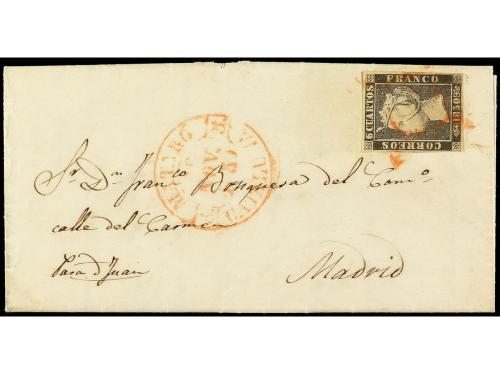 FRANCO
6 CUARTOS
1850
CORREOS
Sr. Dn. Franco Bonguesa del Como.
calle del Carmen
Casa d'Juan
Madrid